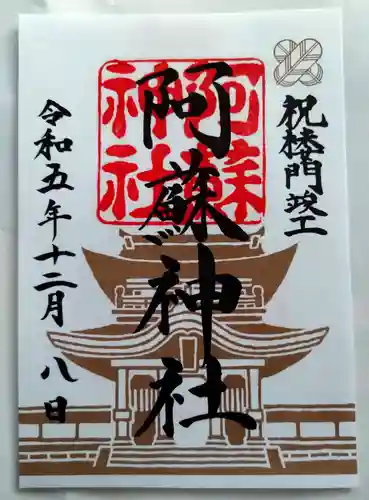 祝楼門竣工
阿蘇神社
阿蘇
神社
令和五年十二月八日